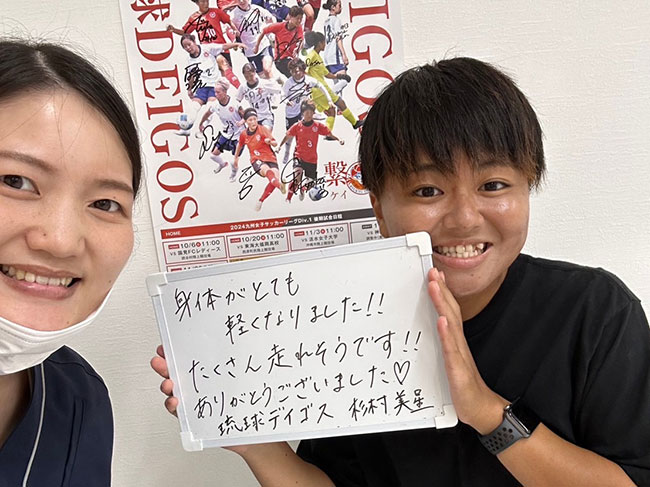 球 DEIGOS
EIGOS
繋
ケイ
2024九州女子サッカーリーグDiv.1 後期試合日程
HOME
10/6 11:00
VS 国見FCレディース
10/20 11:00
VS 東海大福岡高校
11/3 11:00
VS 活水女子大学
身体がとても
軽くなりました!!
たくさん走れそうです!!
ありがとうございました♡
琉球デイゴス 杉村美星